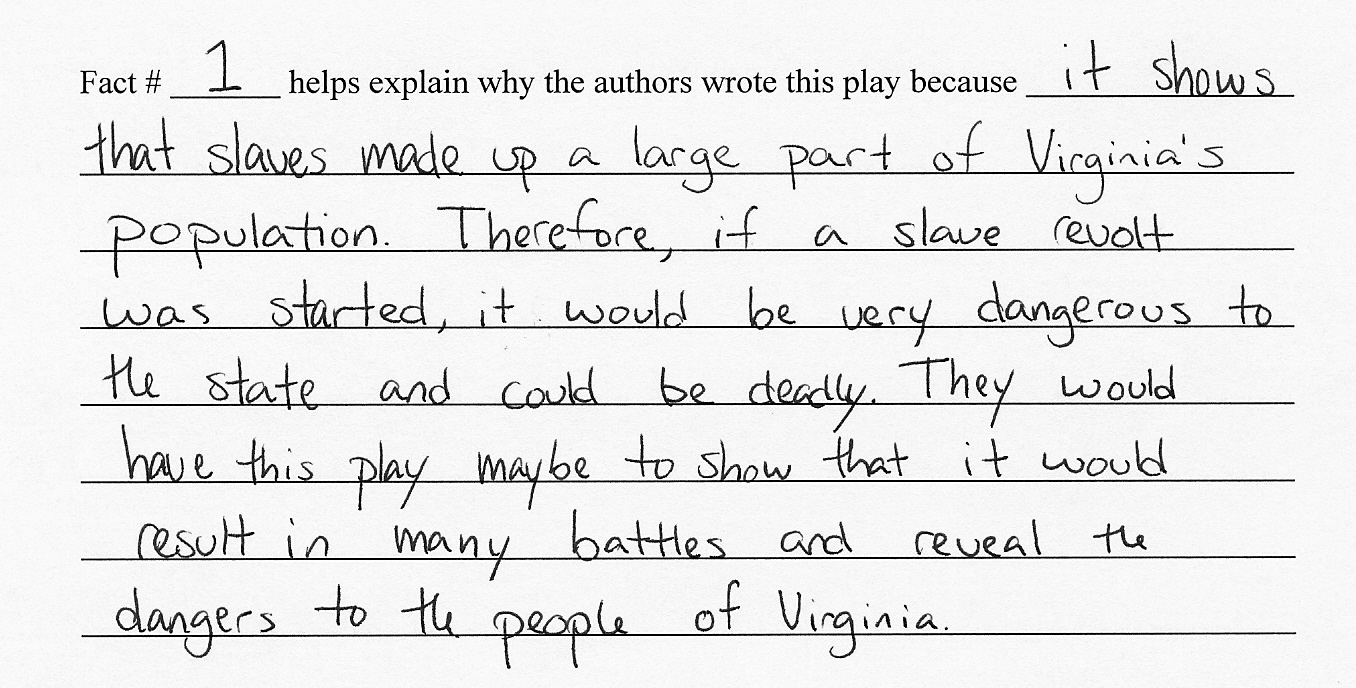 Fact # 1 helps explain why the authors wrote this play because it shows
that slaves made up a large part of Virginia's
population. Therefore, if a slave revolt
was started, it would be very dangerous to
the state and could be deadly. They would
have this play maybe to show that it would
result in many battles and reveal the
dangers to the people of Virginia.